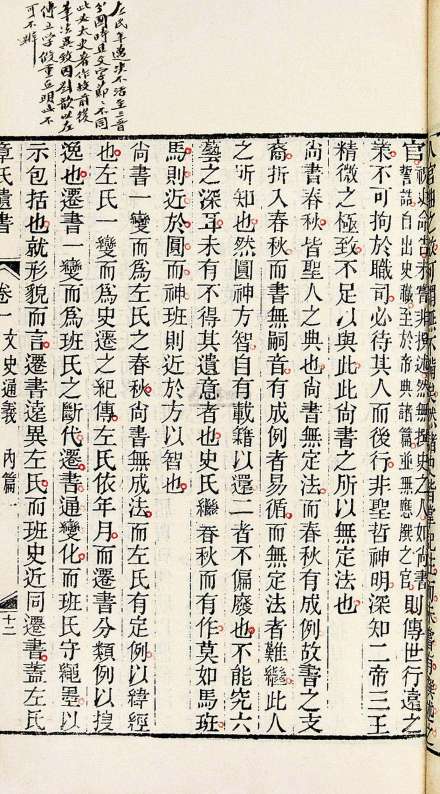 人官曲之故可謂無不備矣然諸史皆掌記注而未嘗有撰述之
官祝史命告未嘗非撰述然無撰史之人如尚書
誓誥自出史職至於帝典諸篇並無應撰之官則傳世行遠之
業不可拘於職司必待其人而後行非聖哲神明深知二帝三王
精微之極致不足以與此此尚書之所以無定法也
尚書春秋皆聖人之典也尚書無成法而春秋有成例故書之支
裔折入春秋而書無嗣音有成例者易循而無定法者難繼此人
之所知也然圓神方智自有載籍以還二者不偏廢也不能究六
藝之深耳未有不得其遺意者也史氏繼春秋而有作莫如馬班
馬則近於圓而神班則近於方以智也
尚書一變而爲左氏之春秋尚書無成法而左氏有定例以緯經
也左氏一變而爲史遷之紀傳左氏依年月而遷書分類例以搜
逸也遷書一變而爲班氏之斷代遷書通變化而班氏守繩墨以
示包括也就形貌而言遷書遠異左氏而班史近同遷書蓋左氏
章氏遺書 卷一 文史通義 內篇一 十二
左氏年至三晉
分國時且文字不同
此必左史著作故前後
筆法異致因劉歆以左
傳立學
可不辨